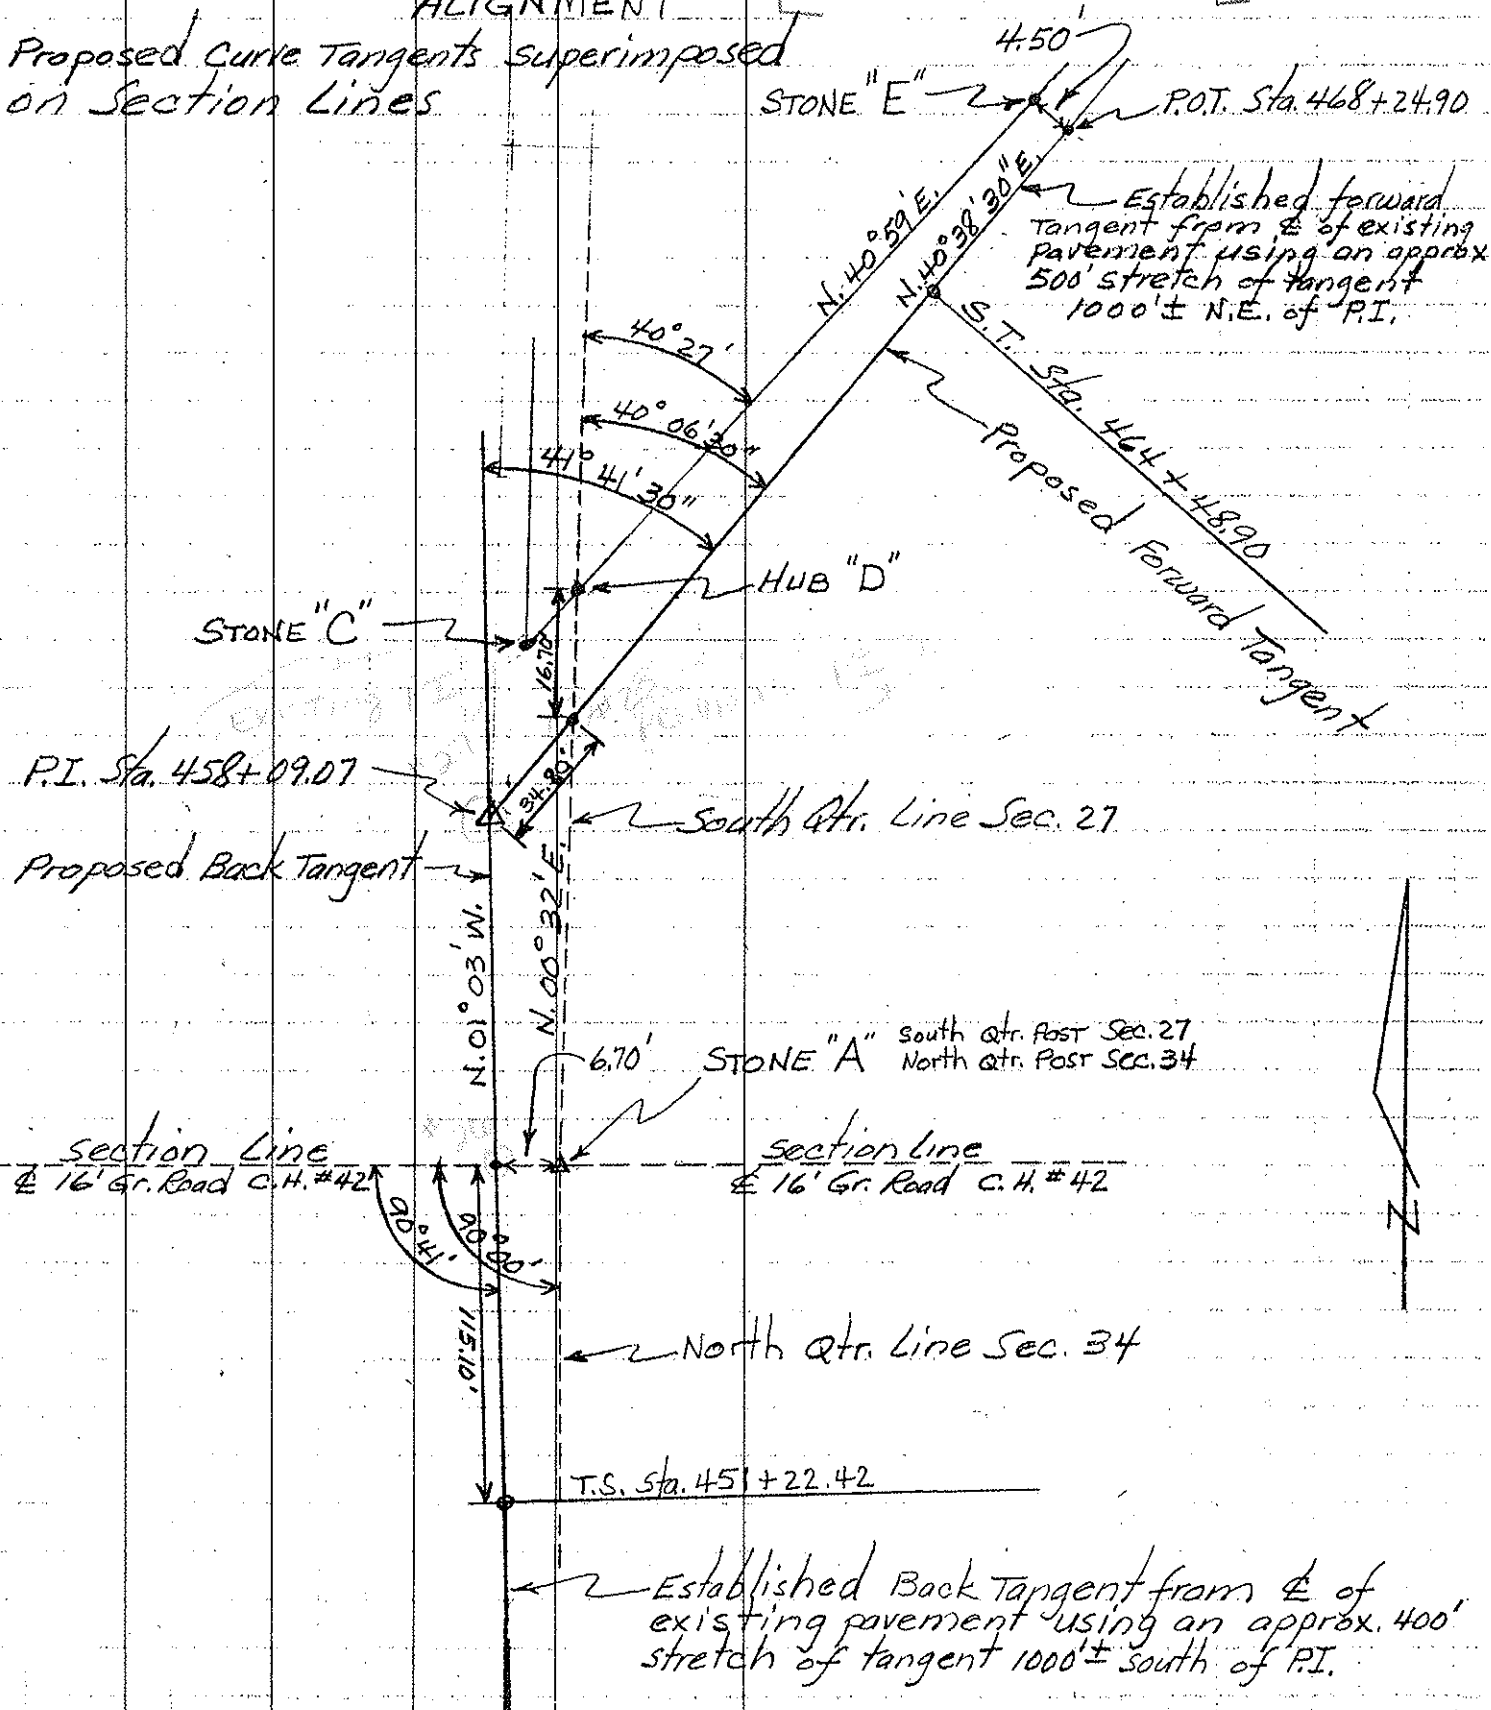 ALIGNMENT
Proposed Curve Tangents superimposed
on Section Lines
4.50'
STONE "E"
P.O.T. Sta. 468+24.90
Established forward
Tangent from ℄ of existing
Pavement using an approx
500' stretch of tangent
1000'± N.E. of P.I.
N. 40° 59' E.
N. 40° 38' 30" E.
S.T. Sta. 464+48.90
Proposed Forward Tangent
40° 27'
40° 06' 30"
41° 41' 30"
HUB "D"
STONE "C"
16.70'
P.I. Sta. 458+09.07
34.80'
South Qtr. Line Sec. 27
Proposed Back Tangent
N. 01° 03' W.
N. 00° 32' E.
6.70'
STONE "A" South Qtr. Post Sec. 27
North Qtr. Post Sec. 34
Section Line
℄ 16' Gr. Road C.H. #42
Section Line
℄ 16' Gr. Road C.H. #42
90° 41'
90° 00'
115.10'
North Qtr. Line Sec. 34
N
T.S. Sta. 451+22.42
Established Back Tangent from ℄ of
existing pavement using an approx. 400'
stretch of tangent 1000'± south of P.I.